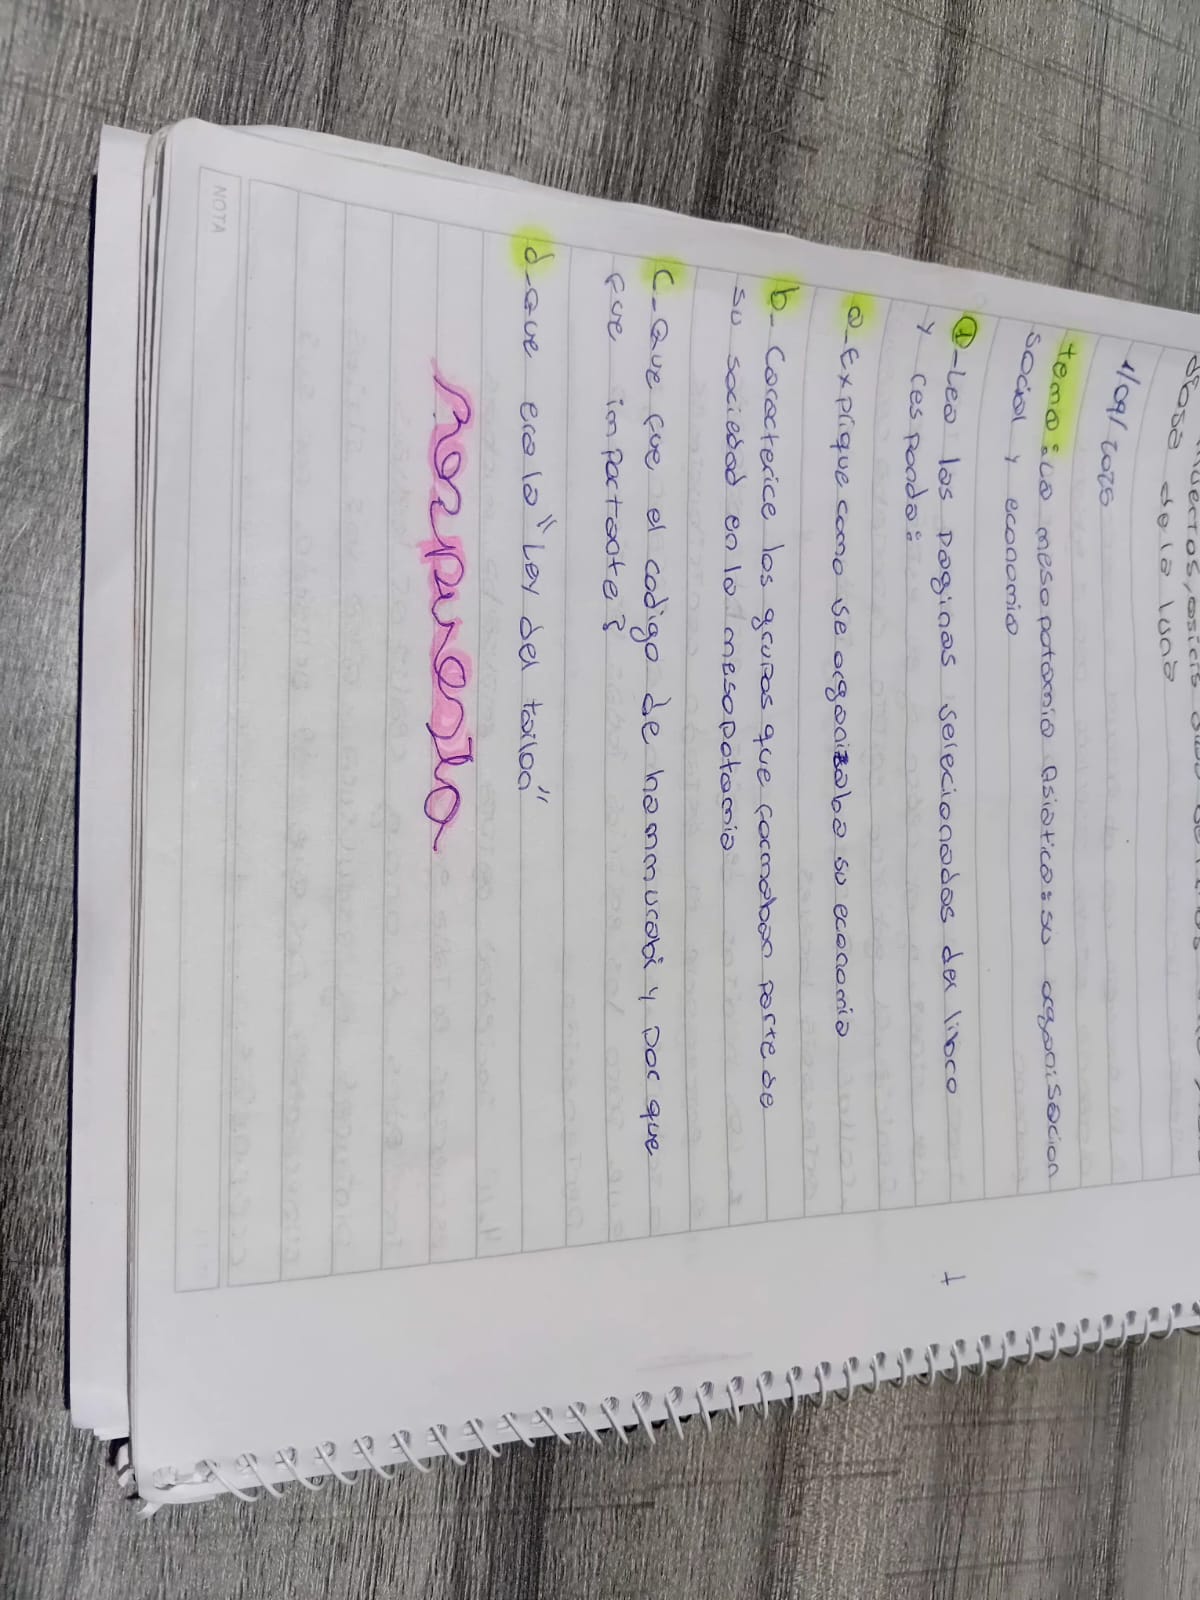 de la luna
1/09/2025
tema: La mesopotamia Asiatica: su organisacion
social y economia
1-Lea las paginas selecionadas del libro
y responda:
a-Explique como se organizaba su economia
b-Caracterice los grupos que formaban parte de
su sociedad en la mesopotamia
c-Que fue el codigo de hammurabi y por que
fue importante?
d-Que era la "Ley del tailon"
Respuesta
NOTA